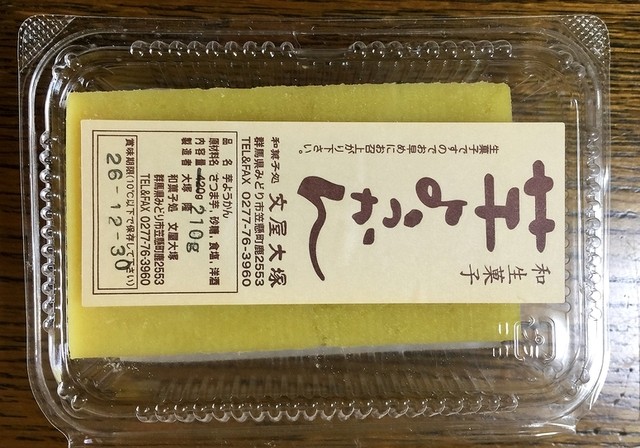 和生菓子
芋ようかん
生菓子ですのでお早めにお召上がり下さい。
和菓子処 文屋大塚
群馬県みどり市笠懸町鹿2553
TEL&FAX 0277-76-3960
品名 芋ようかん
原材料名 さつま芋, 砂糖, 食塩, 洋酒
内容量 420g 210g
製造者 大塚 隆
和菓子処 文屋大塚
群馬県みどり市笠懸町鹿2553
TEL&FAX 0277-76-3960
賞味期限(10℃以下で保存して下さい)
26-12-30